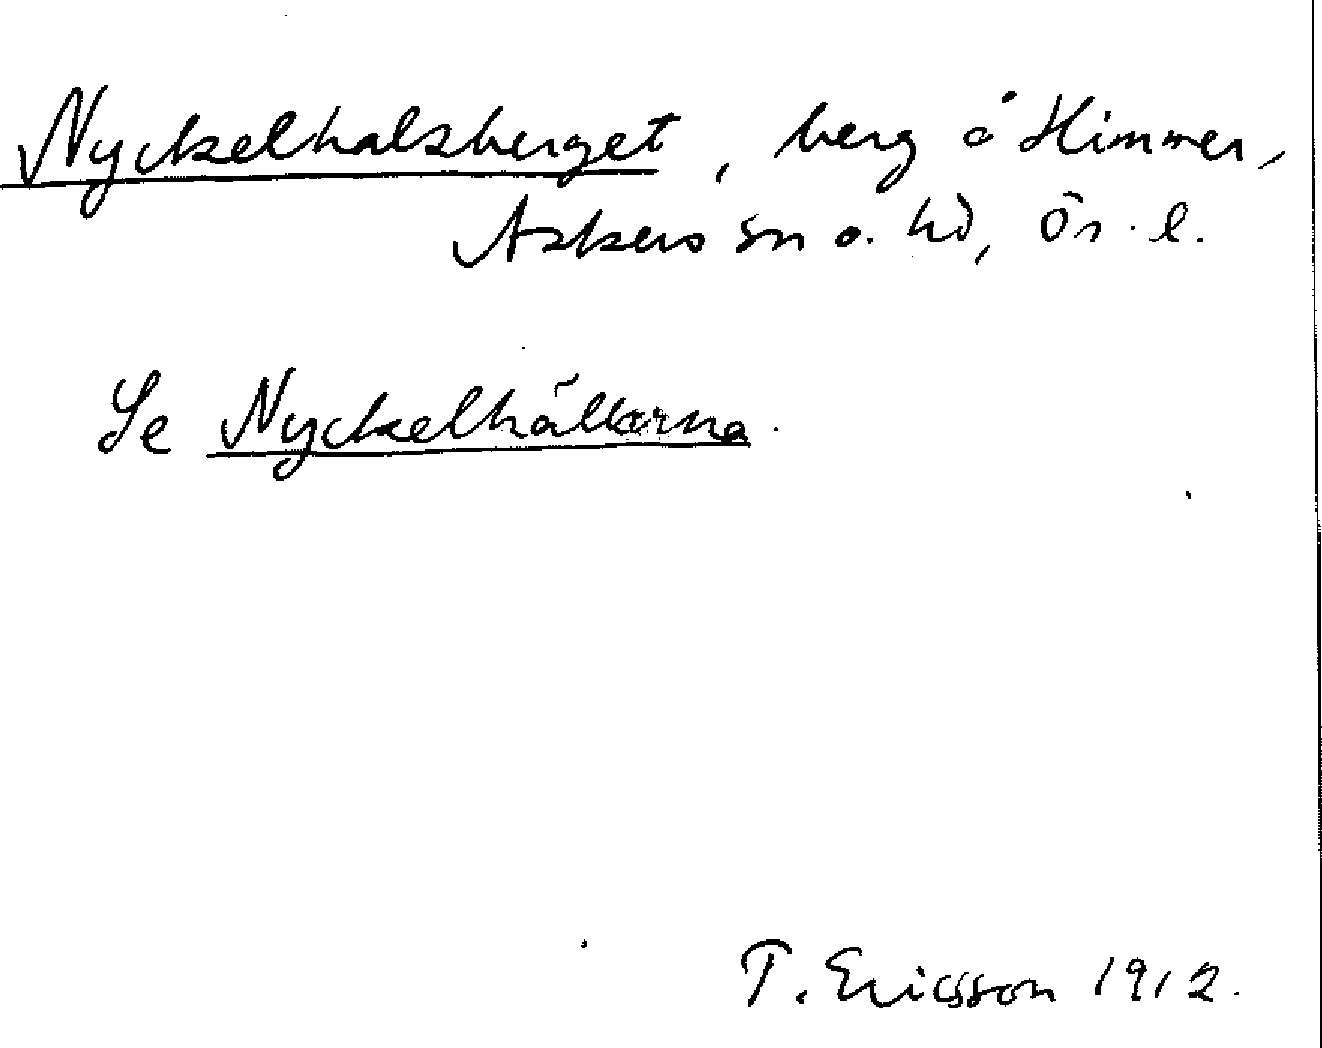 Nyckelhalsberget, berg å Himmer,
Askers sn o. hd, Ör. l.
Se Nyckelhällarna.
T. Ericsson 1912.